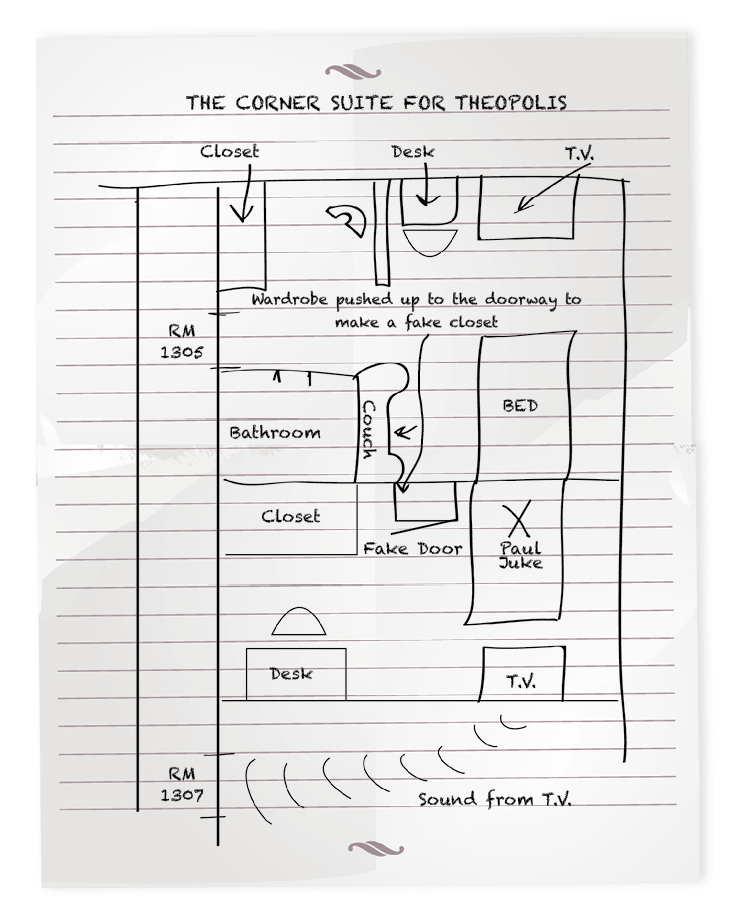 THE CORNER SUITE FOR THEOPOLIS
Closet
Desk
T.V.
Wardrobe pushed up to the doorway to
make a fake closet
RM
1305
BED
Couch
Bathroom
Closet
Fake Door
X
Paul
Juke
Desk
T.V.
RM
1307
Sound from T.V.